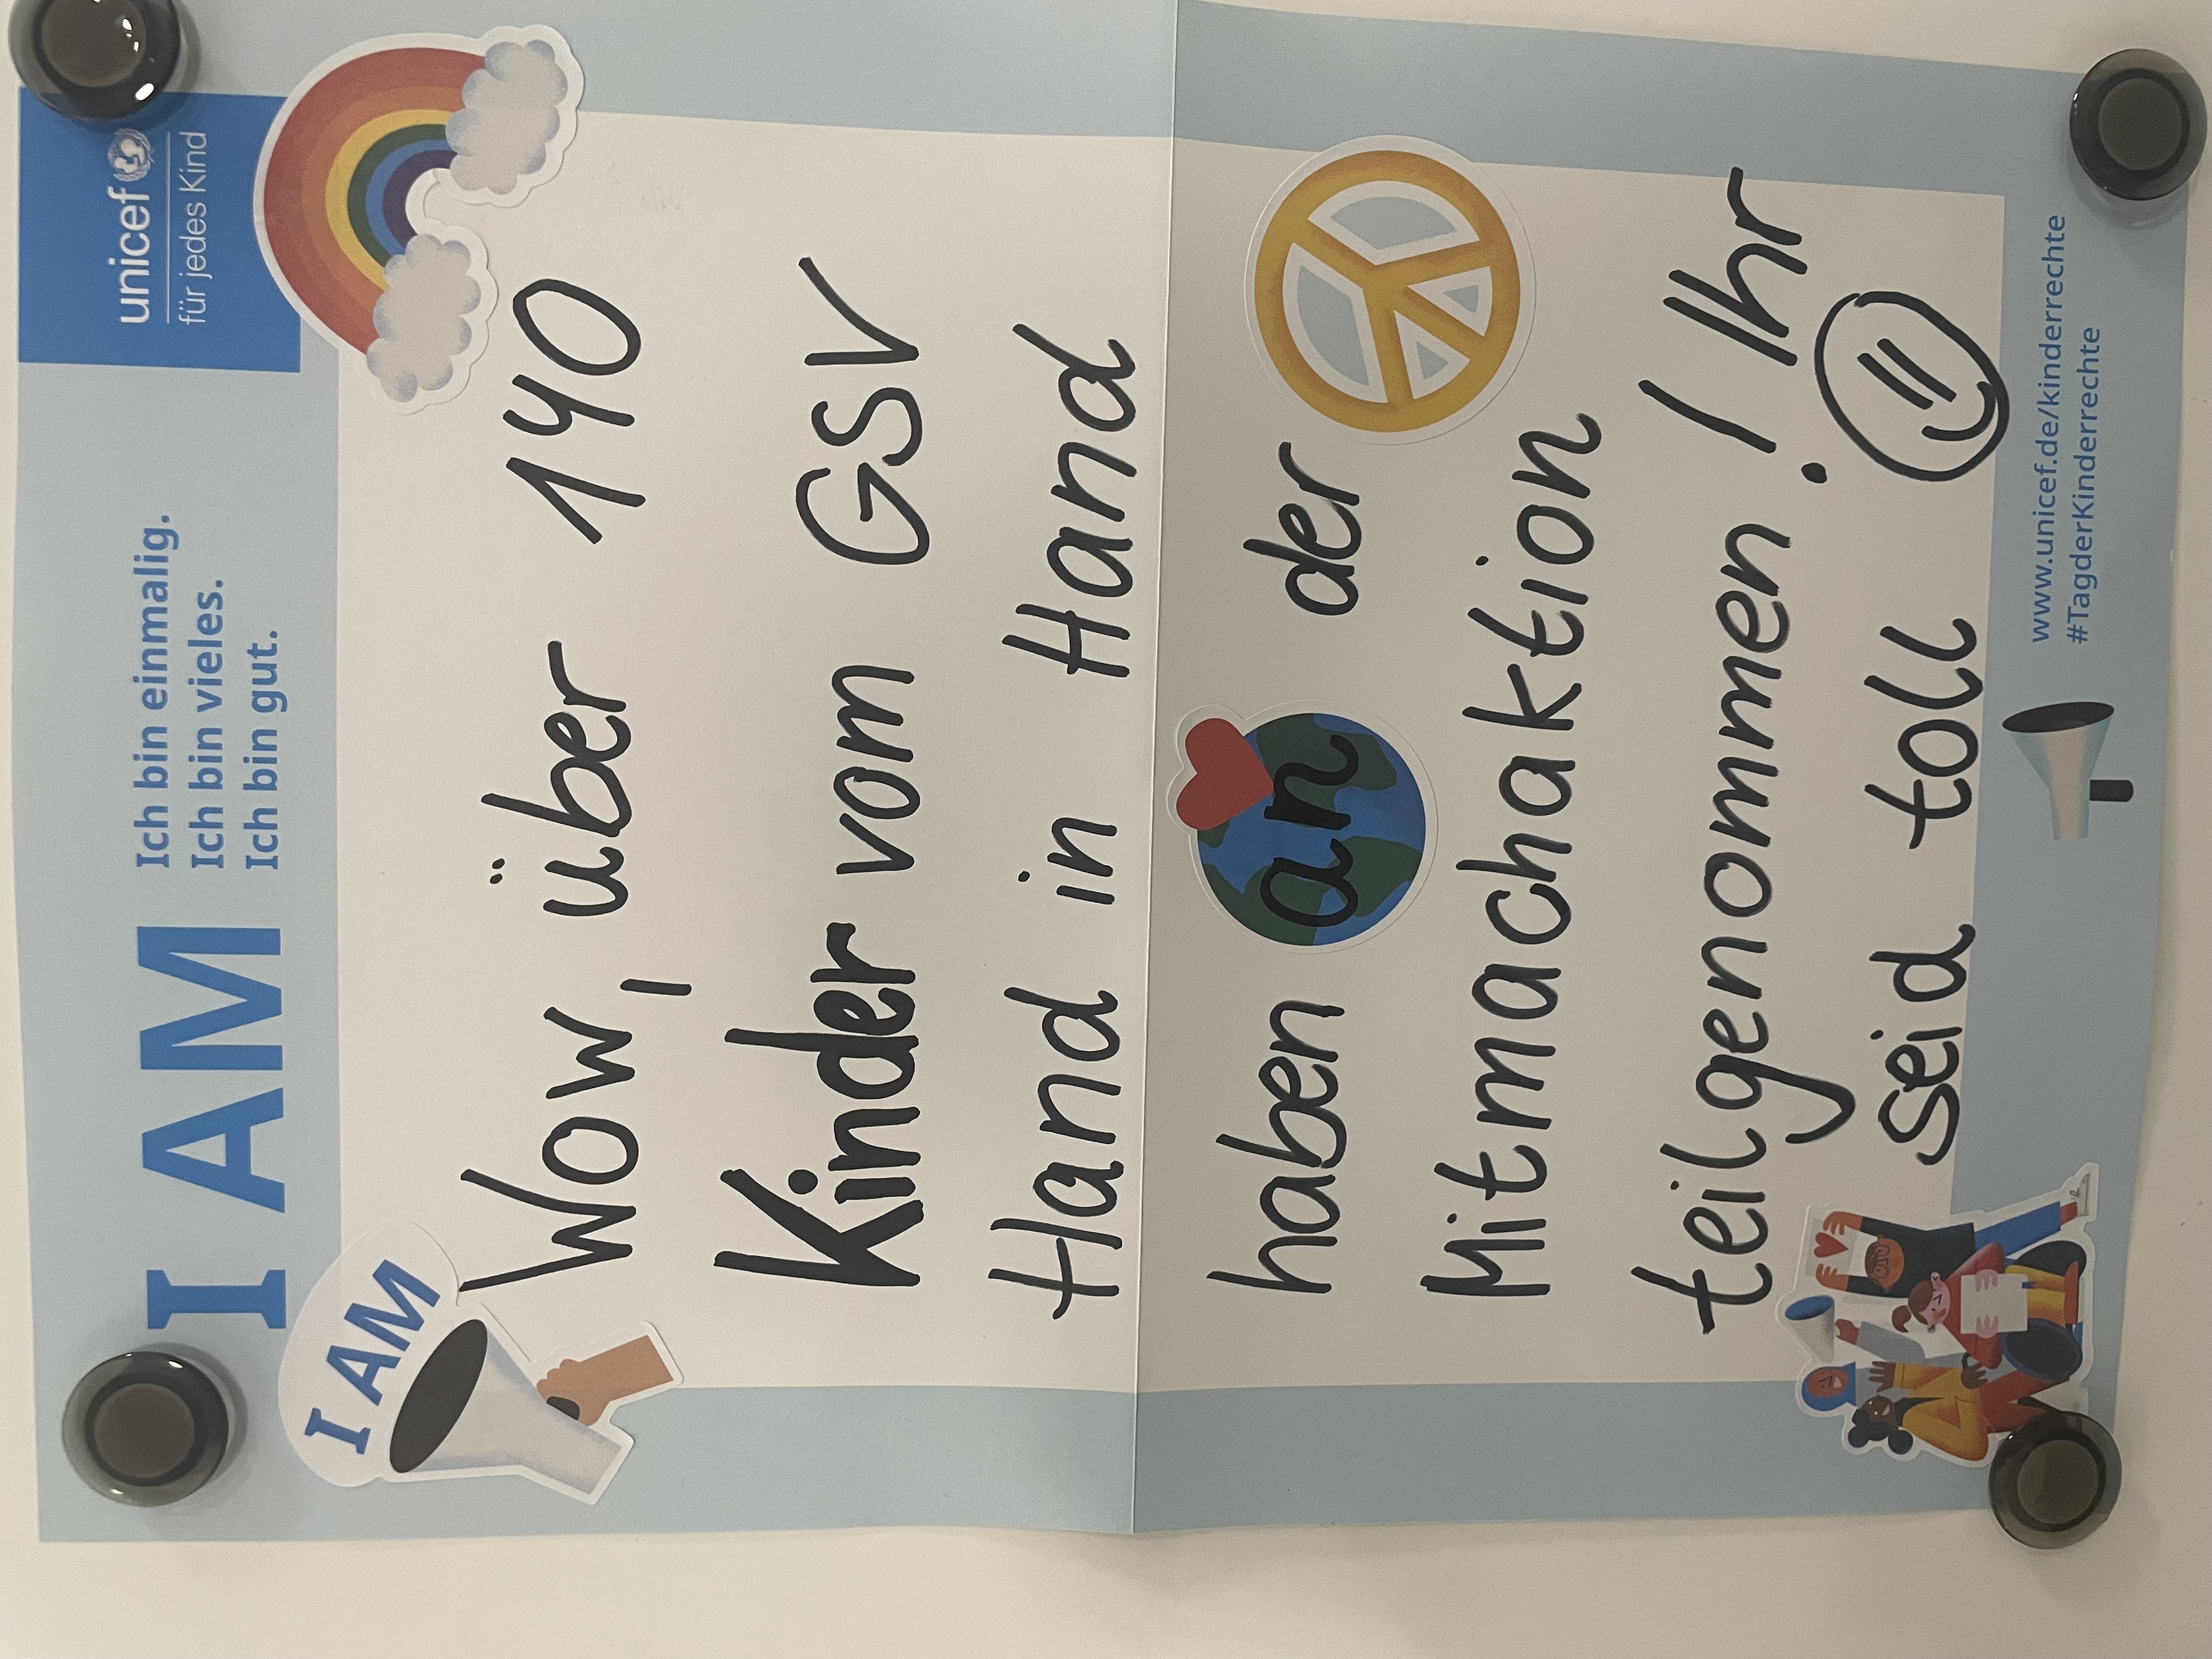 I AM
Ich bin einmalig.
Ich bin vieles.
Ich bin gut.
unicef
für jedes Kind
I AM
Wow, über 140
Kinder vom GSV
Hand in Hand
haben an der
Mitmachaktion
teilgenommen! Ihr
seid toll
www.unicef.de/kinderrechte
#TagderKinderrechte